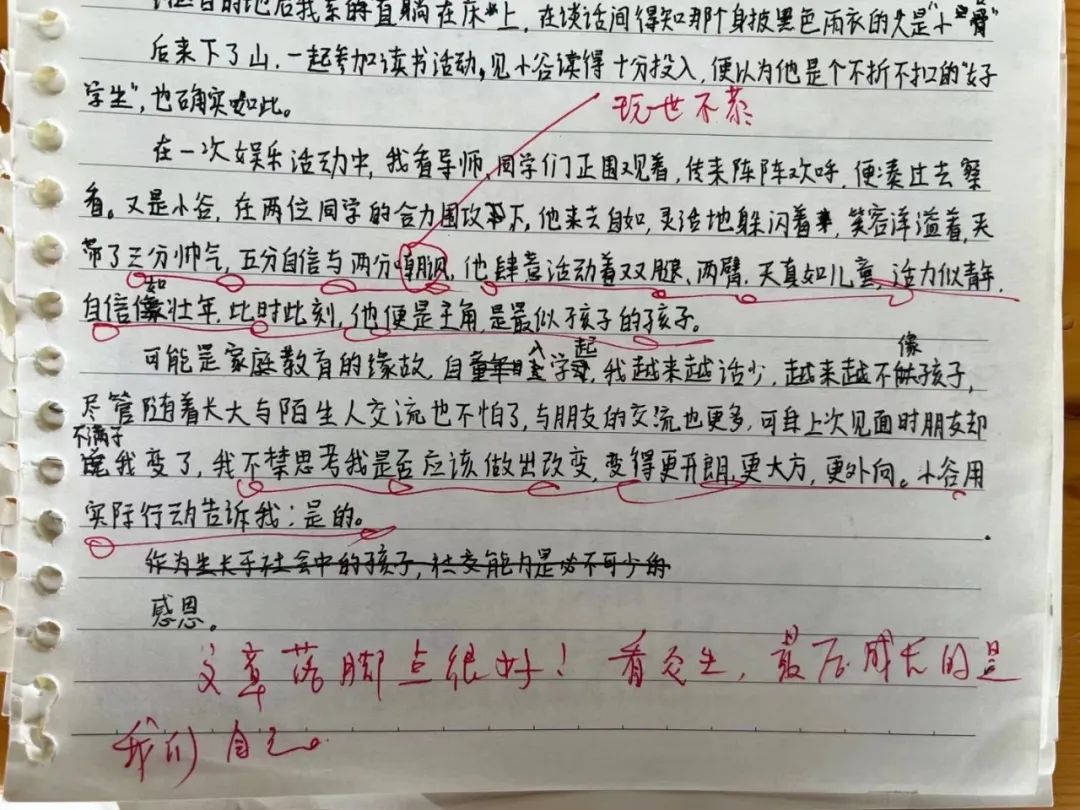 到达目的地后我累得直躺在床上,在谈话间得知那个身披黑色雨衣的人是"小
后来下了山,一起参加读书活动,见小谷读得十分投入,便以为他是个不折不扣的"好
学生",也确实如此。
玩世不恭
在一次娱乐活动中,我看导师、同学们正围观着,传来阵阵欢呼,便凑过去察
看。又是小谷,在两位同学的合力围攻下,他来去自如,灵活地躲闪着,笑容洋溢着,天
带了三分帅气,五分自信与两分嘲讽。他肆意活动着双腿、两臂,天真如儿童,活力似青年,
自信如壮年,此时此刻,他便是主角,是最似孩子的孩子。
可能是家庭教育的缘故,自入学起,我越来越话少,越来越不像孩子,
尽管随着长大与陌生人交流也不怕了,与朋友的交流也更多,可自上次见面时朋友却
不满于我变了,我不禁思考我是否应该做出改变,变得更开朗,更大方,更外向。小谷用
实际行动告诉我:是的。
作为生长于社会中的孩子,社交能力是必不可少的
感恩。
文章落脚点很好!看众生,最后成长的是
我们自己。